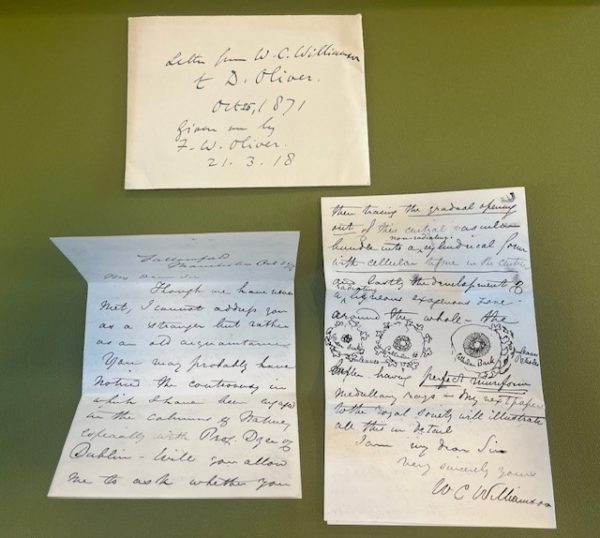 Letter from W. C. Williamson
to D. Oliver.
Oct 25, 1871
Given me by
F. W. Oliver.
21. 3. 18
Fallowfield
Manchester Oct
My dear Sir
Though we have never
met, I cannot address you
as a stranger but rather
as an old acquaintance.
You may probably have
noticed the controversy in
which I have been engaged
in the columns of Nature,
especially with Prof. Dyer of
Dublin - Will you allow
me to ask whether you
then tracing the gradual opening
out of this central vascular
non-radiating
bundle into a cylindrical form
with cellular tissue in the centre
and lastly the development of
a ligneous exogenous zone
around the whole - the
Cellular Bark
latter having perfect muriform
medullary rays - My next paper
to the royal Society will illustrate
all this in detail
I am my dear Sir
very sincerely yours
W C Williamson